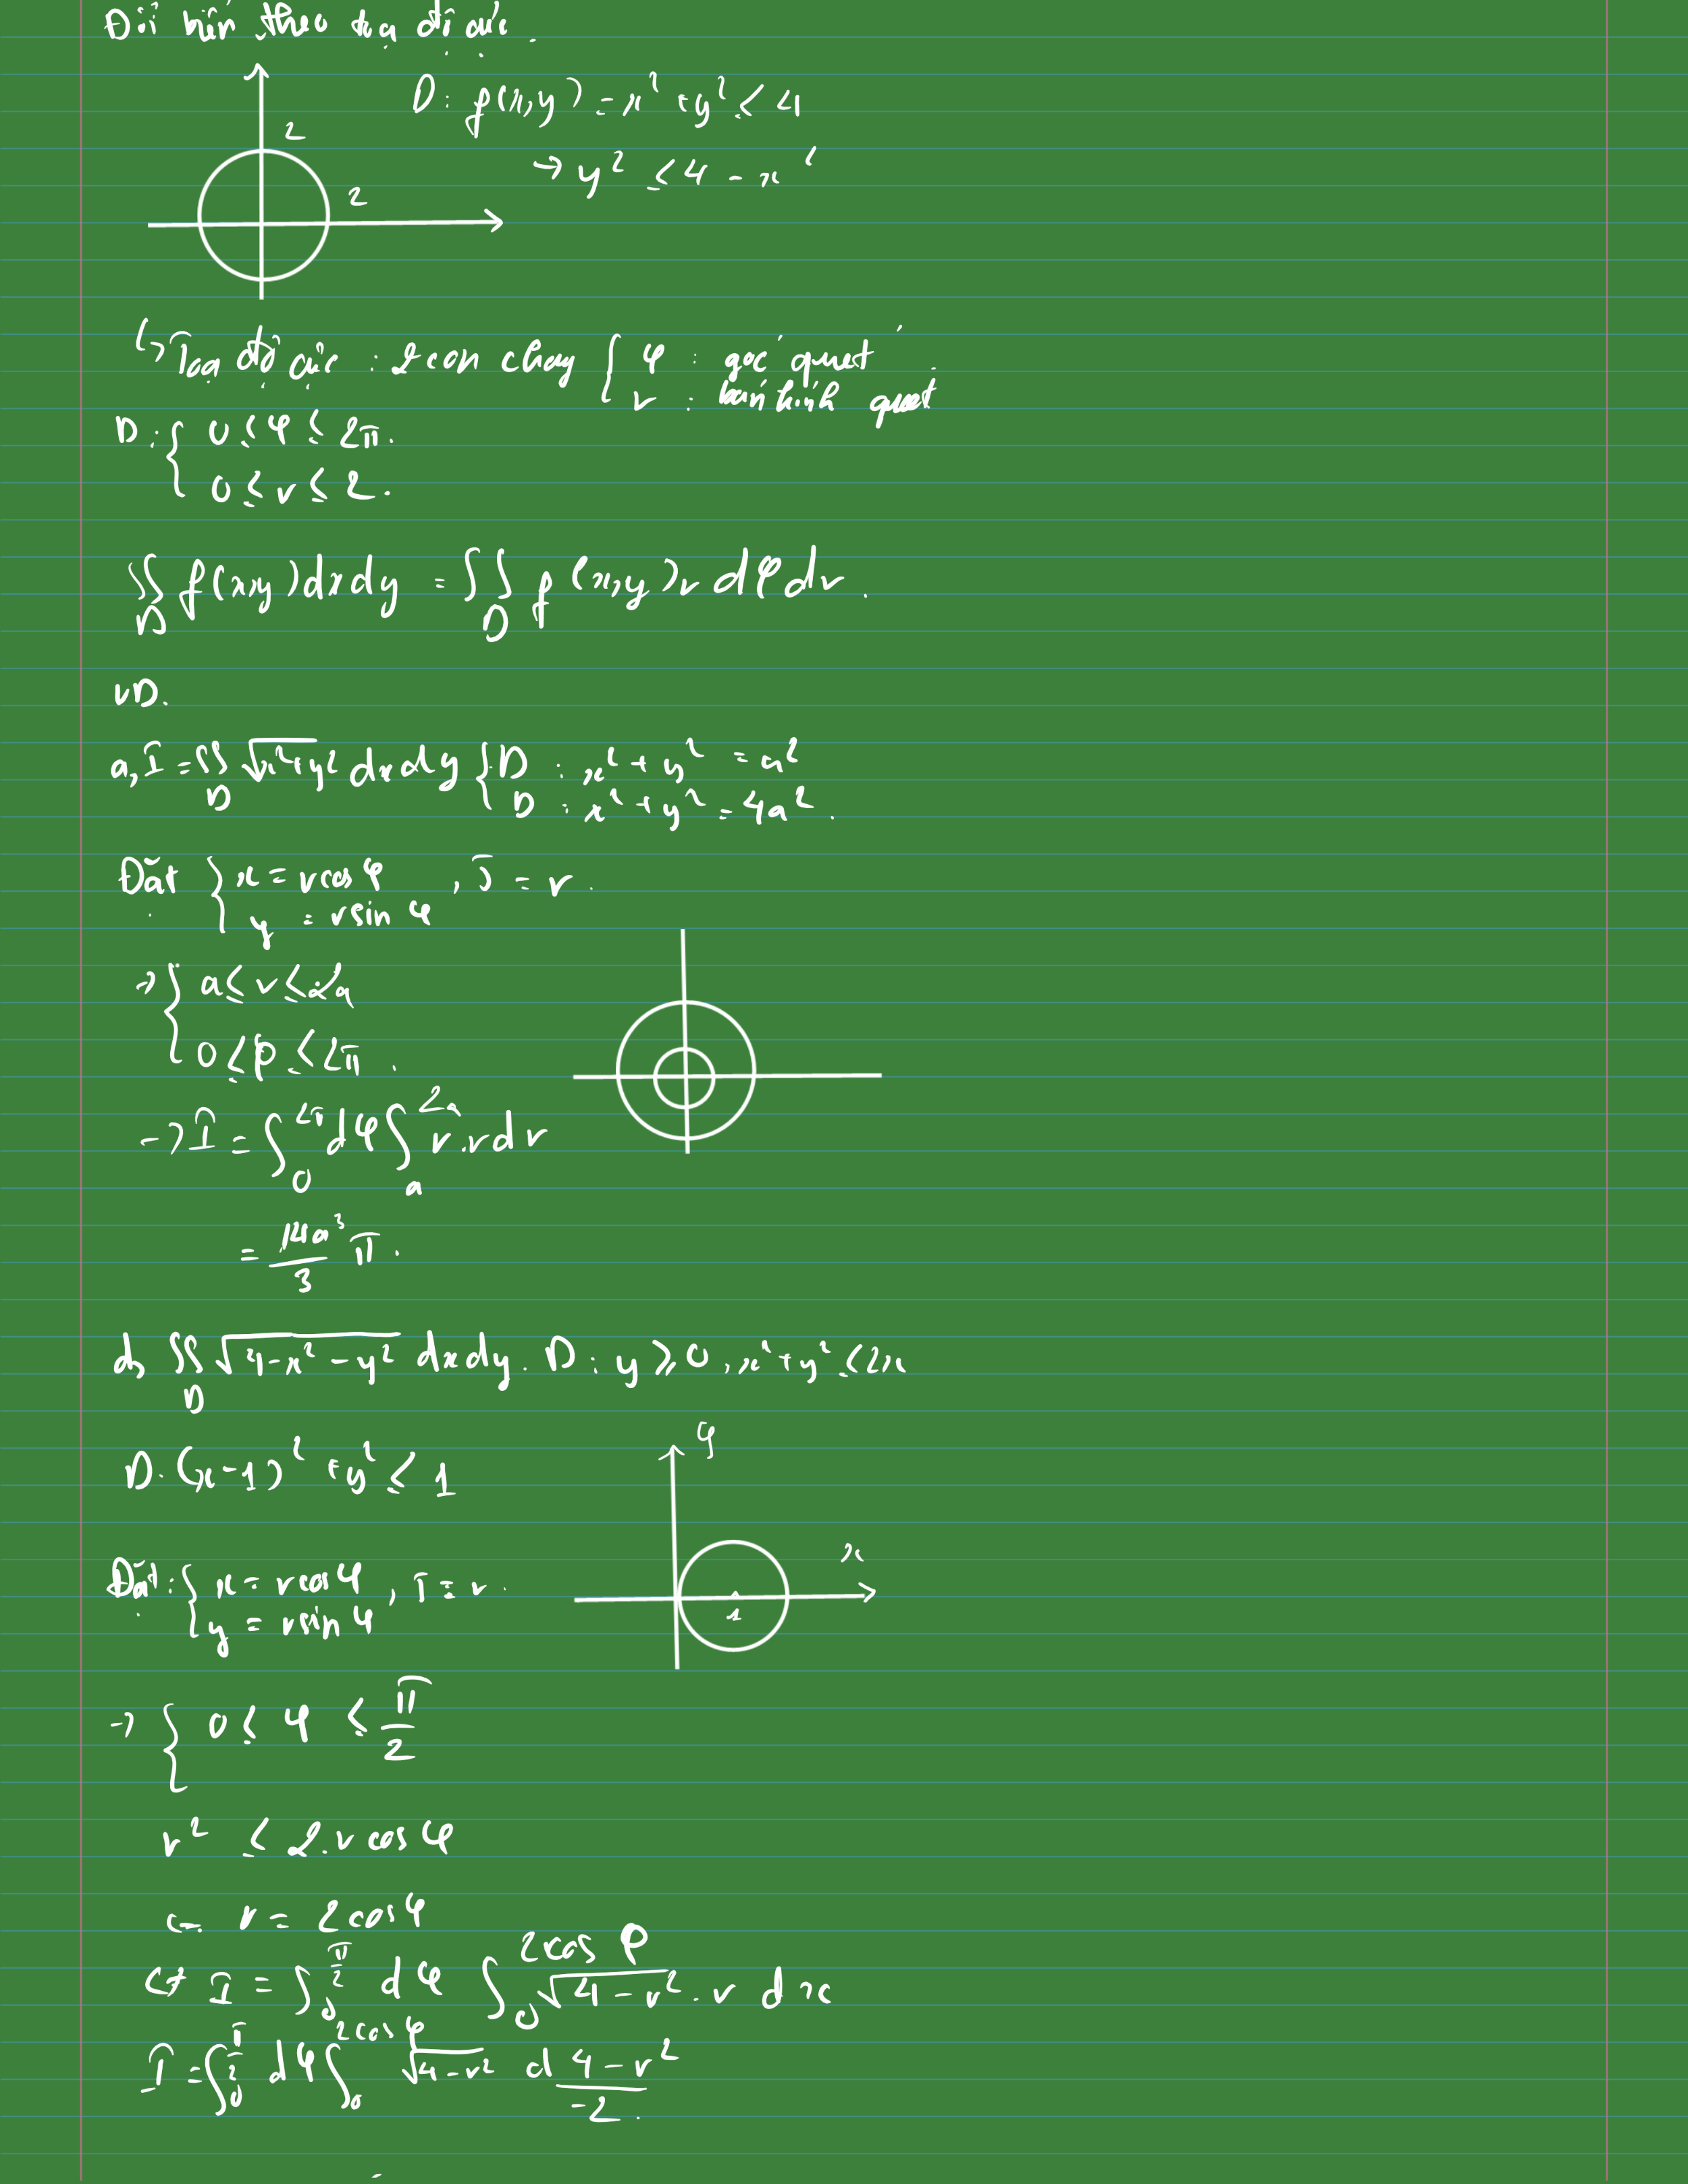 Đổi biến theo tọa độ cực.
D: f(x,y) = x² + y² ≤ 4
2
→ y² ≤ 4 - x²
2
↳ Tọa độ cực : 2 con chạy { φ : góc quét
r : bán kính quét
D: { 0 ≤ φ ≤ 2π.
0 ≤ r ≤ 2.
∬_D f(x,y) dxdy = ∬_D f(x,y) r dφ dr.
VD.
a, I = ∬_D √(x²+y²) dxdy { D : x² + y² = a²
D : x² + y² = 4a².
Đặt { x = r cos φ , J = r.
y = r sin φ
→ { a ≤ r ≤ 2a
0 ≤ φ ≤ 2π.
→ I = ∫_0^{2π} dφ ∫_a^{2a} r.r dr
= 14a³/3 π.
d, ∬_D √(4-x²-y²) dxdy. D : y ≥ 0, x²+y² ≤ 2x
y
D. (x-1)² + y² ≤ 1
x
Đặt: { x = r cos φ , J = r.
1
y = r sin φ
→ { 0 ≤ φ ≤ π/2
r² ≤ 2.r cos φ
r = 2 cos φ
I = ∫_0^{π/2} dφ ∫_0^{2cos φ} √(4-r²) . r dx
I = ∫_0^{π/2} dφ ∫_0^{2cos φ} √(4-r²) d (4-r²)/-2.